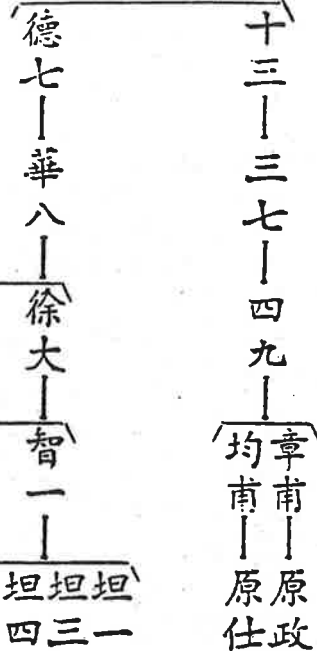 十三
三七
四九
章甫
原政
均甫
原仕
德七
華八
徐大
智一
坦一
坦三
坦四